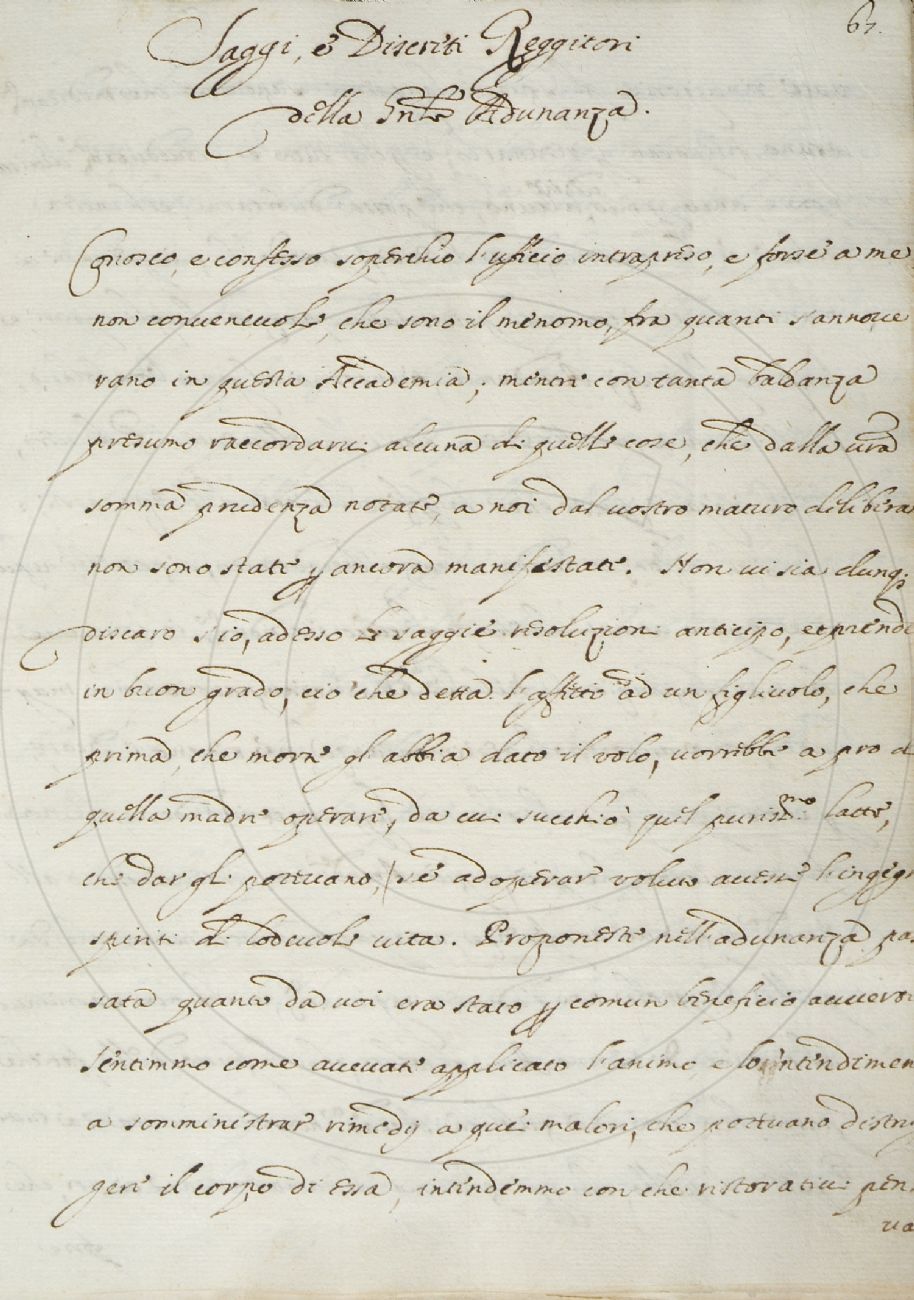 67.
Saggi, e Discreti Reggitori
della Pnte Adunanza.
Conosco, e confesso soperchio l'ufficio intrapreso, e forse a me
non convenevole, che sono il menomo, fra quanti s'annove
rano in questa Accademia, mentre con tanta baldanza
presumo raccordarvi alcuna di quelle cose, che dalla vra
somma prudenza notate, a noi dal vostro maturo delibera
non sono state p ancora manifestate. Non vi sia dunq;
discaro s'io, adesso le saggie resoluzioni anticipo, e prende
in buon grado, ciò che detta l'affetto ad un figlivolo, che
prima, che morte gl'abbia dato il volo, vorrebbe a pro d
quella madre operare, da cui succhiò quel puriss.mo latte,
che dar gli potevano, se adoperar voluto avesse l'ingegn
spiriti di lodevole vita. Proponeste nell'adunanza pas
sata quanto da voi era stato p comun beneficio avverti
sentimmo come avevate applicato l'animo, e lo intendimen
a somministrar rimedij a que' malori, che potevano distrug
gere il corpo di essa, intendemmo con che ristorativi pen
va